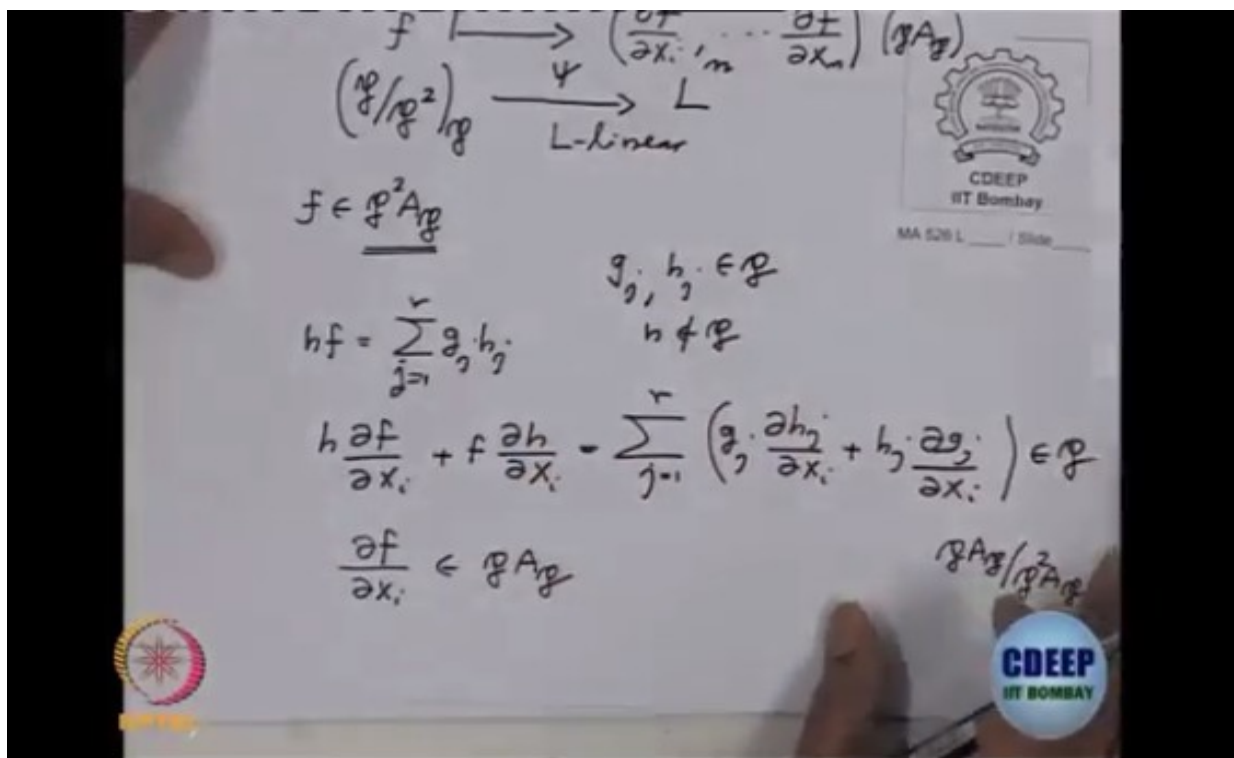 f ⟼ (∂f/∂x_i, ... ∂f/∂x_n) (℘A_℘)
(℘/℘²)_℘ —ψ→ L
L-linear
CDEEP
IIT Bombay
MA 526 L ____ / Slide____
f ∈ ℘²A_℘
g_j, h_j ∈ ℘
hf = Σ_{j=1}^{r} g_j h_j
h ∉ ℘
h ∂f/∂x_i + f ∂h/∂x_i = Σ_{j=1}^{r} (g_j ∂h_j/∂x_i + h_j ∂g_j/∂x_i) ∈ ℘
∂f/∂x_i ∈ ℘A_℘
℘A_℘/℘²A_℘
NPTEL
CDEEP
IIT BOMBAY